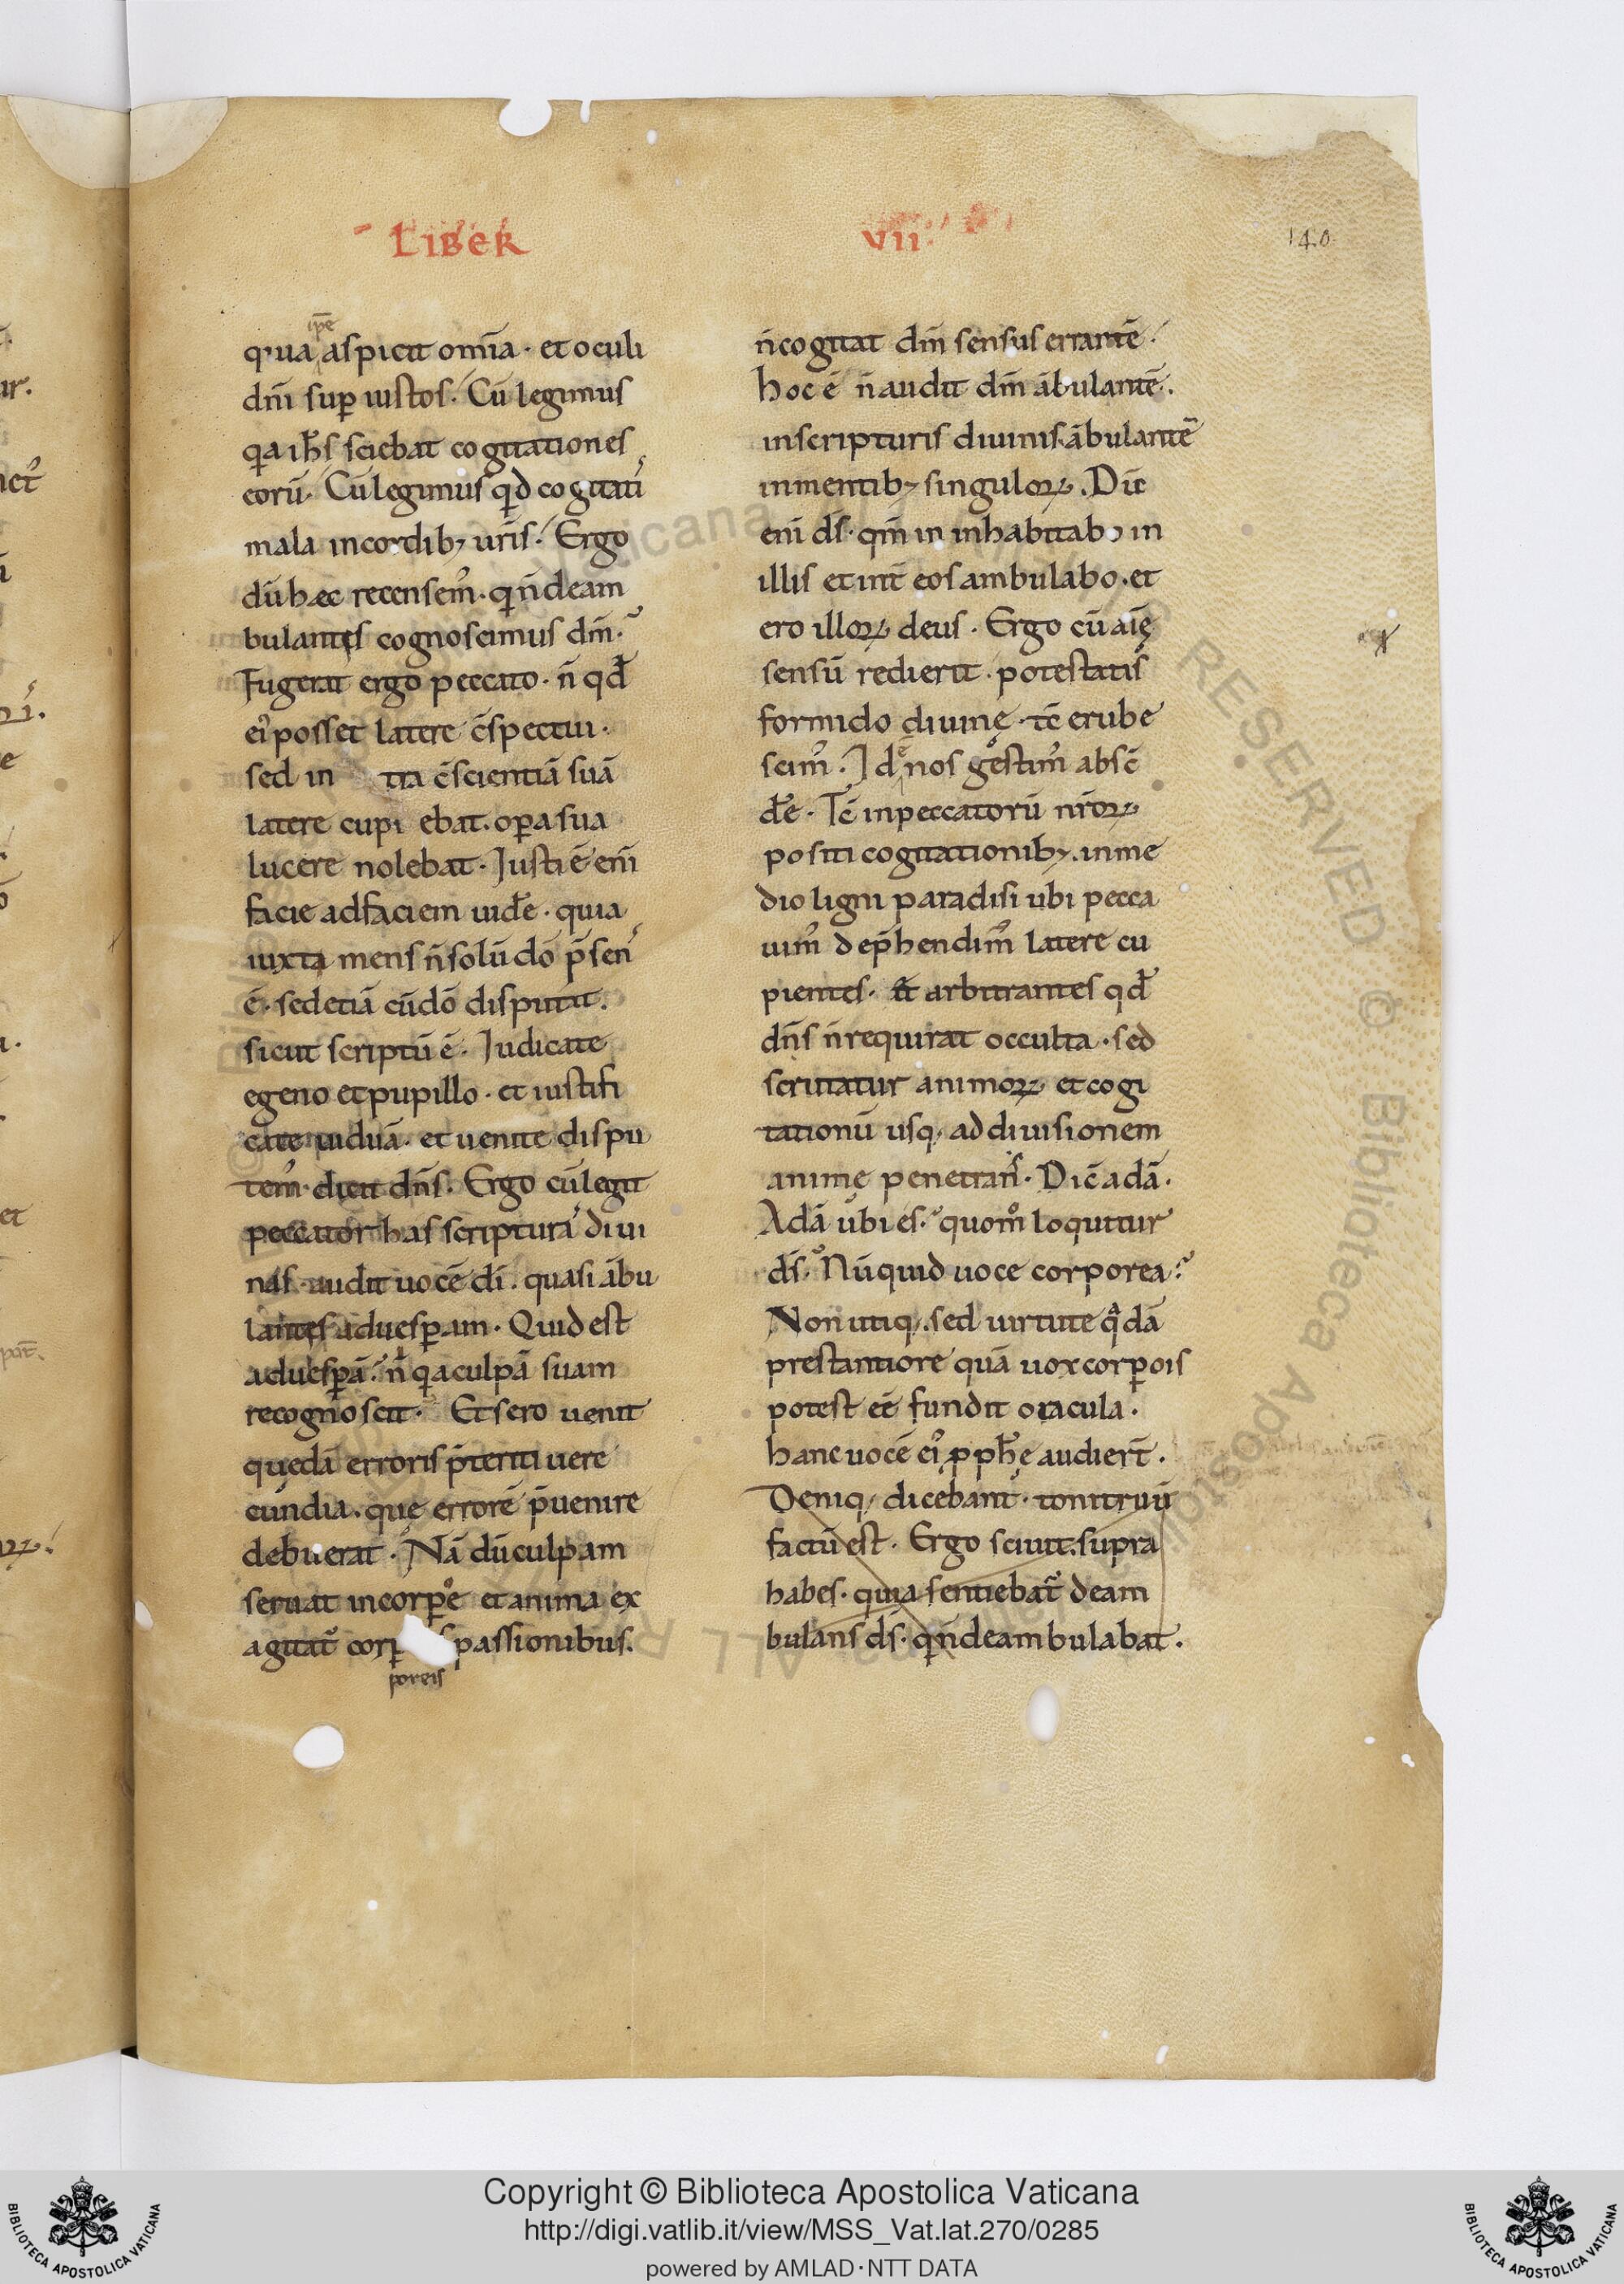 LIBER
VII
140
ip̄e
qua aspicit om̄ia · et oculi
dn̄i sup̱ iustos. Cū legimus
qa ih̄s sciebat cogitationes
eorū. Cū legimus qd cogitati
mala incordib; ur̄is. Ergo
dū haec recensem᷒. q n̄ deam
bulantes cognoscimus dn̄m.
Fugerat ergo peccato · n̄ qd̄
ei᷒ posset latere c̄spectui ·
sed in tia c̄scientiā suā
latere cupi ebat. op̱a sua
lucere nolebat · Justi ē eni
facie adfaciem uid̄e · quia
iuxta mens n̄ solū dō p̄sen᷒
ē · sed etiā cūdō disputat.
sicut scriptū ē · Judicate
egeno et pupillo · et iustifi
cate uiduā · et uenite dispu
tem᷒ dicit dn̄s. Ergo cū legit
peccator has scriptura᷒ diui
nas audit uocē dī. quasi ābu
lantes aduesp̱am · Quid est
aduesp̱ā? n̄ qa culpā suam
recognoscit · Et sero uenit
quedā erroris p̄teriti uere
cūndia. quę errorē p̄uenire
debuerat · Nā dū culpam
seruat incorp̱e et anima ex
agitat᷒ corp̱ s passionibus.
poreis
n̄ cogitat dn̄m sensus errantē.
hoc ē n̄ audit dn̄m ābulantē.
inscripturis diuinis. ābulantē
inmentib; singuloꝝ. Dīc
eni ds̄ · qm̄ in inhabitabo in
illis et int̄ eos ambulabo. et
ero illoꝝ deus · Ergo cū aīę
sensū redierit · potestatis᷒
formido diuinę · tc̄ erube
scim᷒. Id nos gestim᷒ absc̄
d̄e · Tc̄ inpeccatorū nr̄oꝝ
positi cogitationib;. inme
dio ligni paradisi ubi pecca
uim᷒ dep̄hendim᷒ latere cu
pientes · et arbitrantes qd̄
dn̄s n̄ requirat occulta · sed
scrutatur animoꝝ et cogi
tationū usq; addiuisionem
animę penetran᷒s. Dic̄ adā.
Adā ubi es? quomo loquitur
ds̄? Nūquid uoce corporea?
Non utiq;. sed uirtute qdā
prestantiore quā uox corp̱ois
potest eē fundit oracula.
hanc uocē ei᷒ p̱ph̄e audiert̄.
Deniq; dicebant · tonitruū
factū est. Ergo sciuit. supra
habes. quia sentiebat᷒ deam
bulans ds̄ · q n̄ deambulabat.
Copyright © Biblioteca Apostolica Vaticana
http://digi.vatlib.it/view/MSS_Vat.lat.270/0285
powered by AMLAD·NTT DATA
BIBLIOTECA APOSTOLICA VATICANA
BIBLIOTECA APOSTOLICA VATICANA